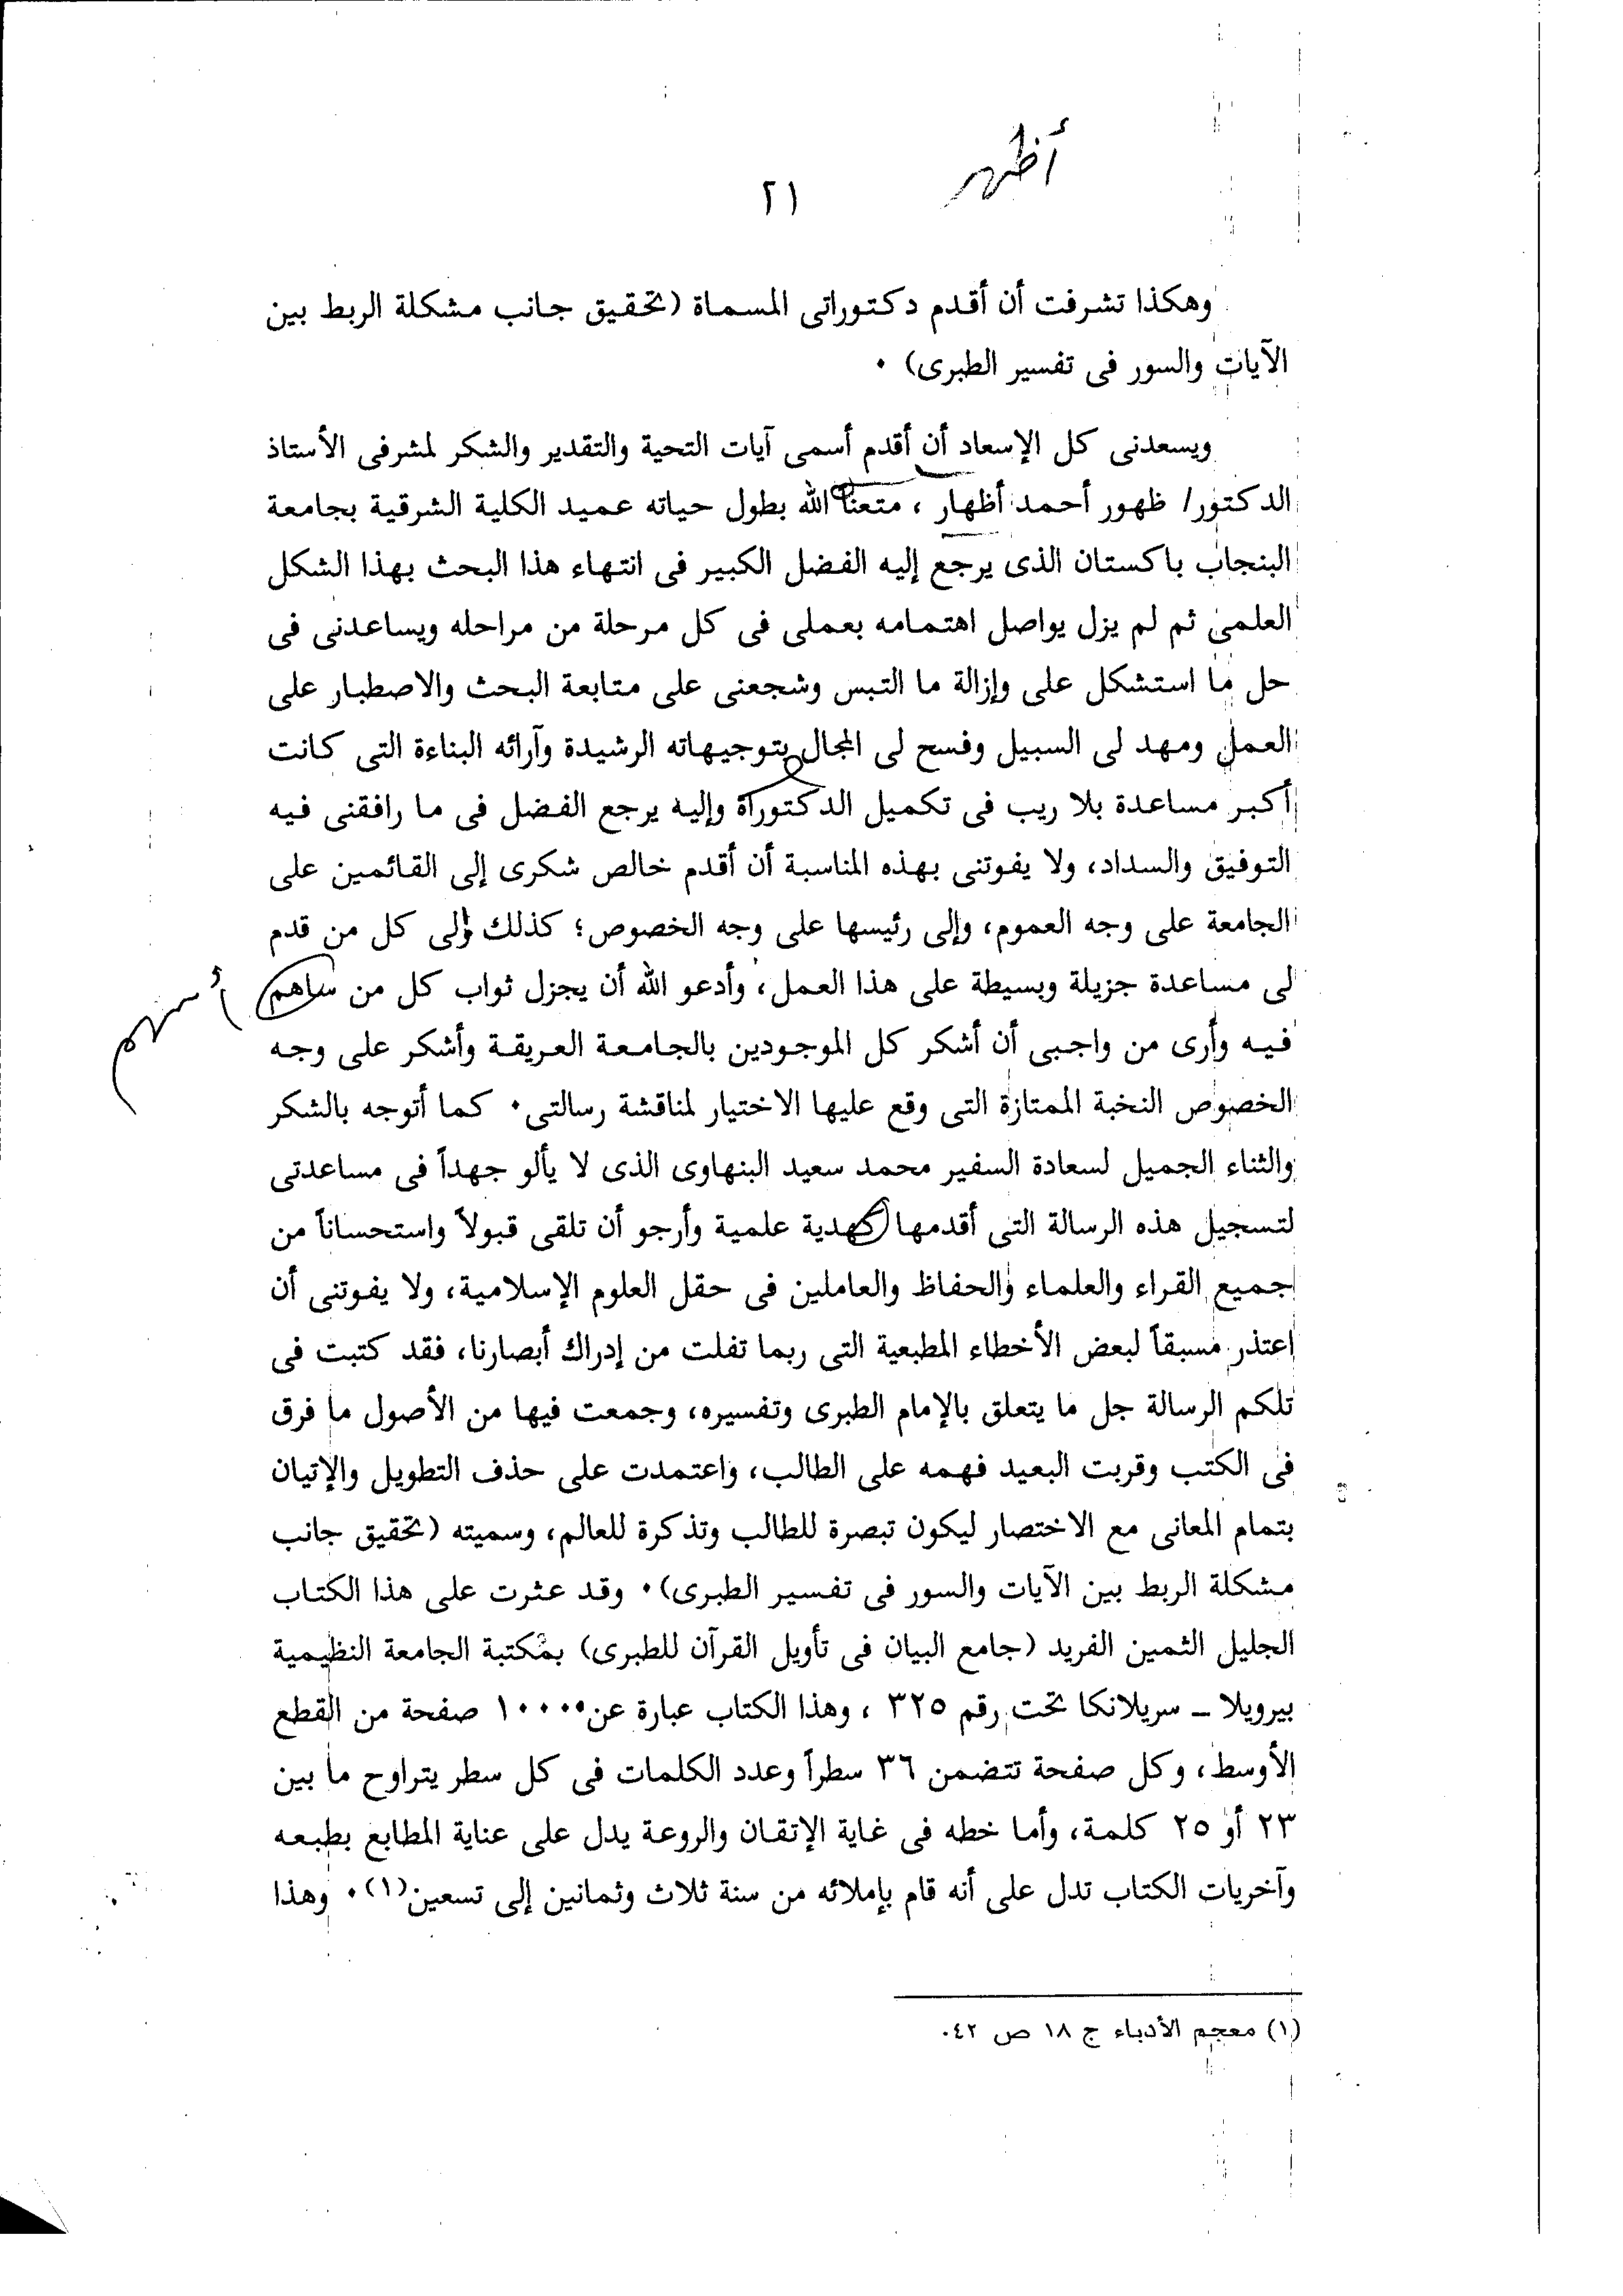 أظهر
٢١
وهكذا تشرفت أن أقدم دكتوراتى المسماة (تحقيق جانب مشكلة الربط بين
الآيات والسور فى تفسير الطبرى) ٠
ويسعدنى كل الإسعاد أن أقدم أسمى آيات التحية والتقدير والشكر لمشرفى الأستاذ
الدكتور/ ظهور أحمد أظهار ، متعنا الله بطول حياته عميد الكلية الشرقية بجامعة
البنجاب باكستان الذى يرجع إليه الفضل الكبير فى انتهاء هذا البحث بهذا الشكل
العلمى ثم لم يزل يواصل اهتمامه بعملى فى كل مرحلة من مراحله ويساعدنى فى
حل ما استشكل على وإزالة ما التبس وشجعنى على متابعة البحث والاصطبار على
العمل ومهد لى السبيل وفسح لى المجال بتوجيهاته الرشيدة وآرائه البناءة التى كانت
أكبر مساعدة بلا ريب فى تكميل الدكتوراة وإليه يرجع الفضل فى ما رافقنى فيه
التوفيق والسداد، ولا يفوتنى بهذه المناسبة أن أقدم خالص شكرى إلى القائمين على
الجامعة على وجه العموم، وإلى رئيسها على وجه الخصوص؛ كذلك وإلى كل من قدم
لى مساعدة جزيلة وبسيطة على هذا العمل، وأدعو الله أن يجزل ثواب كل من ساهم
أسهم
فيه وأرى من واجبى أن أشكر كل الموجودين بالجامعة العريقة وأشكر على وجه
الخصوص النخبة الممتازة التى وقع عليها الاختيار لمناقشة رسالتى٠ كما أتوجه بالشكر
والثناء الجميل لسعادة السفير محمد سعيد البنهاوى الذى لا يألو جهداً فى مساعدتى
لتسجيل هذه الرسالة التى أقدمها كهدية علمية وأرجو أن تلقى قبولاً واستحساناً من
جميع القراء والعلماء والحفاظ والعاملين فى حقل العلوم الإسلامية، ولا يفوتنى أن
اعتذر مسبقاً لبعض الأخطاء المطبعية التى ربما تفلت من إدراك أبصارنا، فقد كتبت فى
تلكم الرسالة جل ما يتعلق بالإمام الطبرى وتفسيره، وجمعت فيها من الأصول ما فرق
فى الكتب وقربت البعيد فهمه على الطالب، واعتمدت على حذف التطويل والإتيان
بتمام المعانى مع الاختصار ليكون تبصرة للطالب وتذكرة للعالم، وسميته (تحقيق جانب
مشكلة الربط بين الآيات والسور فى تفسير الطبرى)٠ وقد عثرت على هذا الكتاب
الجليل الثمين الفريد (جامع البيان فى تأويل القرآن للطبرى) بمكتبة الجامعة النظيمية
بيرويلا – سريلانكا تحت رقم ٣٢٥ ، وهذا الكتاب عبارة عن ١٠٠٠٠ صفحة من القطع
الأوسط، وكل صفحة تتضمن ٣٦ سطراً وعدد الكلمات فى كل سطر يتراوح ما بين
٢٣ أو ٢٥ كلمة، وأما خطه فى غاية الإتقان والروعة يدل على عناية المطابع بطبعه
وآخريات الكتاب تدل على أنه قام بإملائه من سنة ثلاث وثمانين إلى تسعين(١)٠ وهذا
(١) معجم الأدباء ج ١٨ ص ٤٢٠